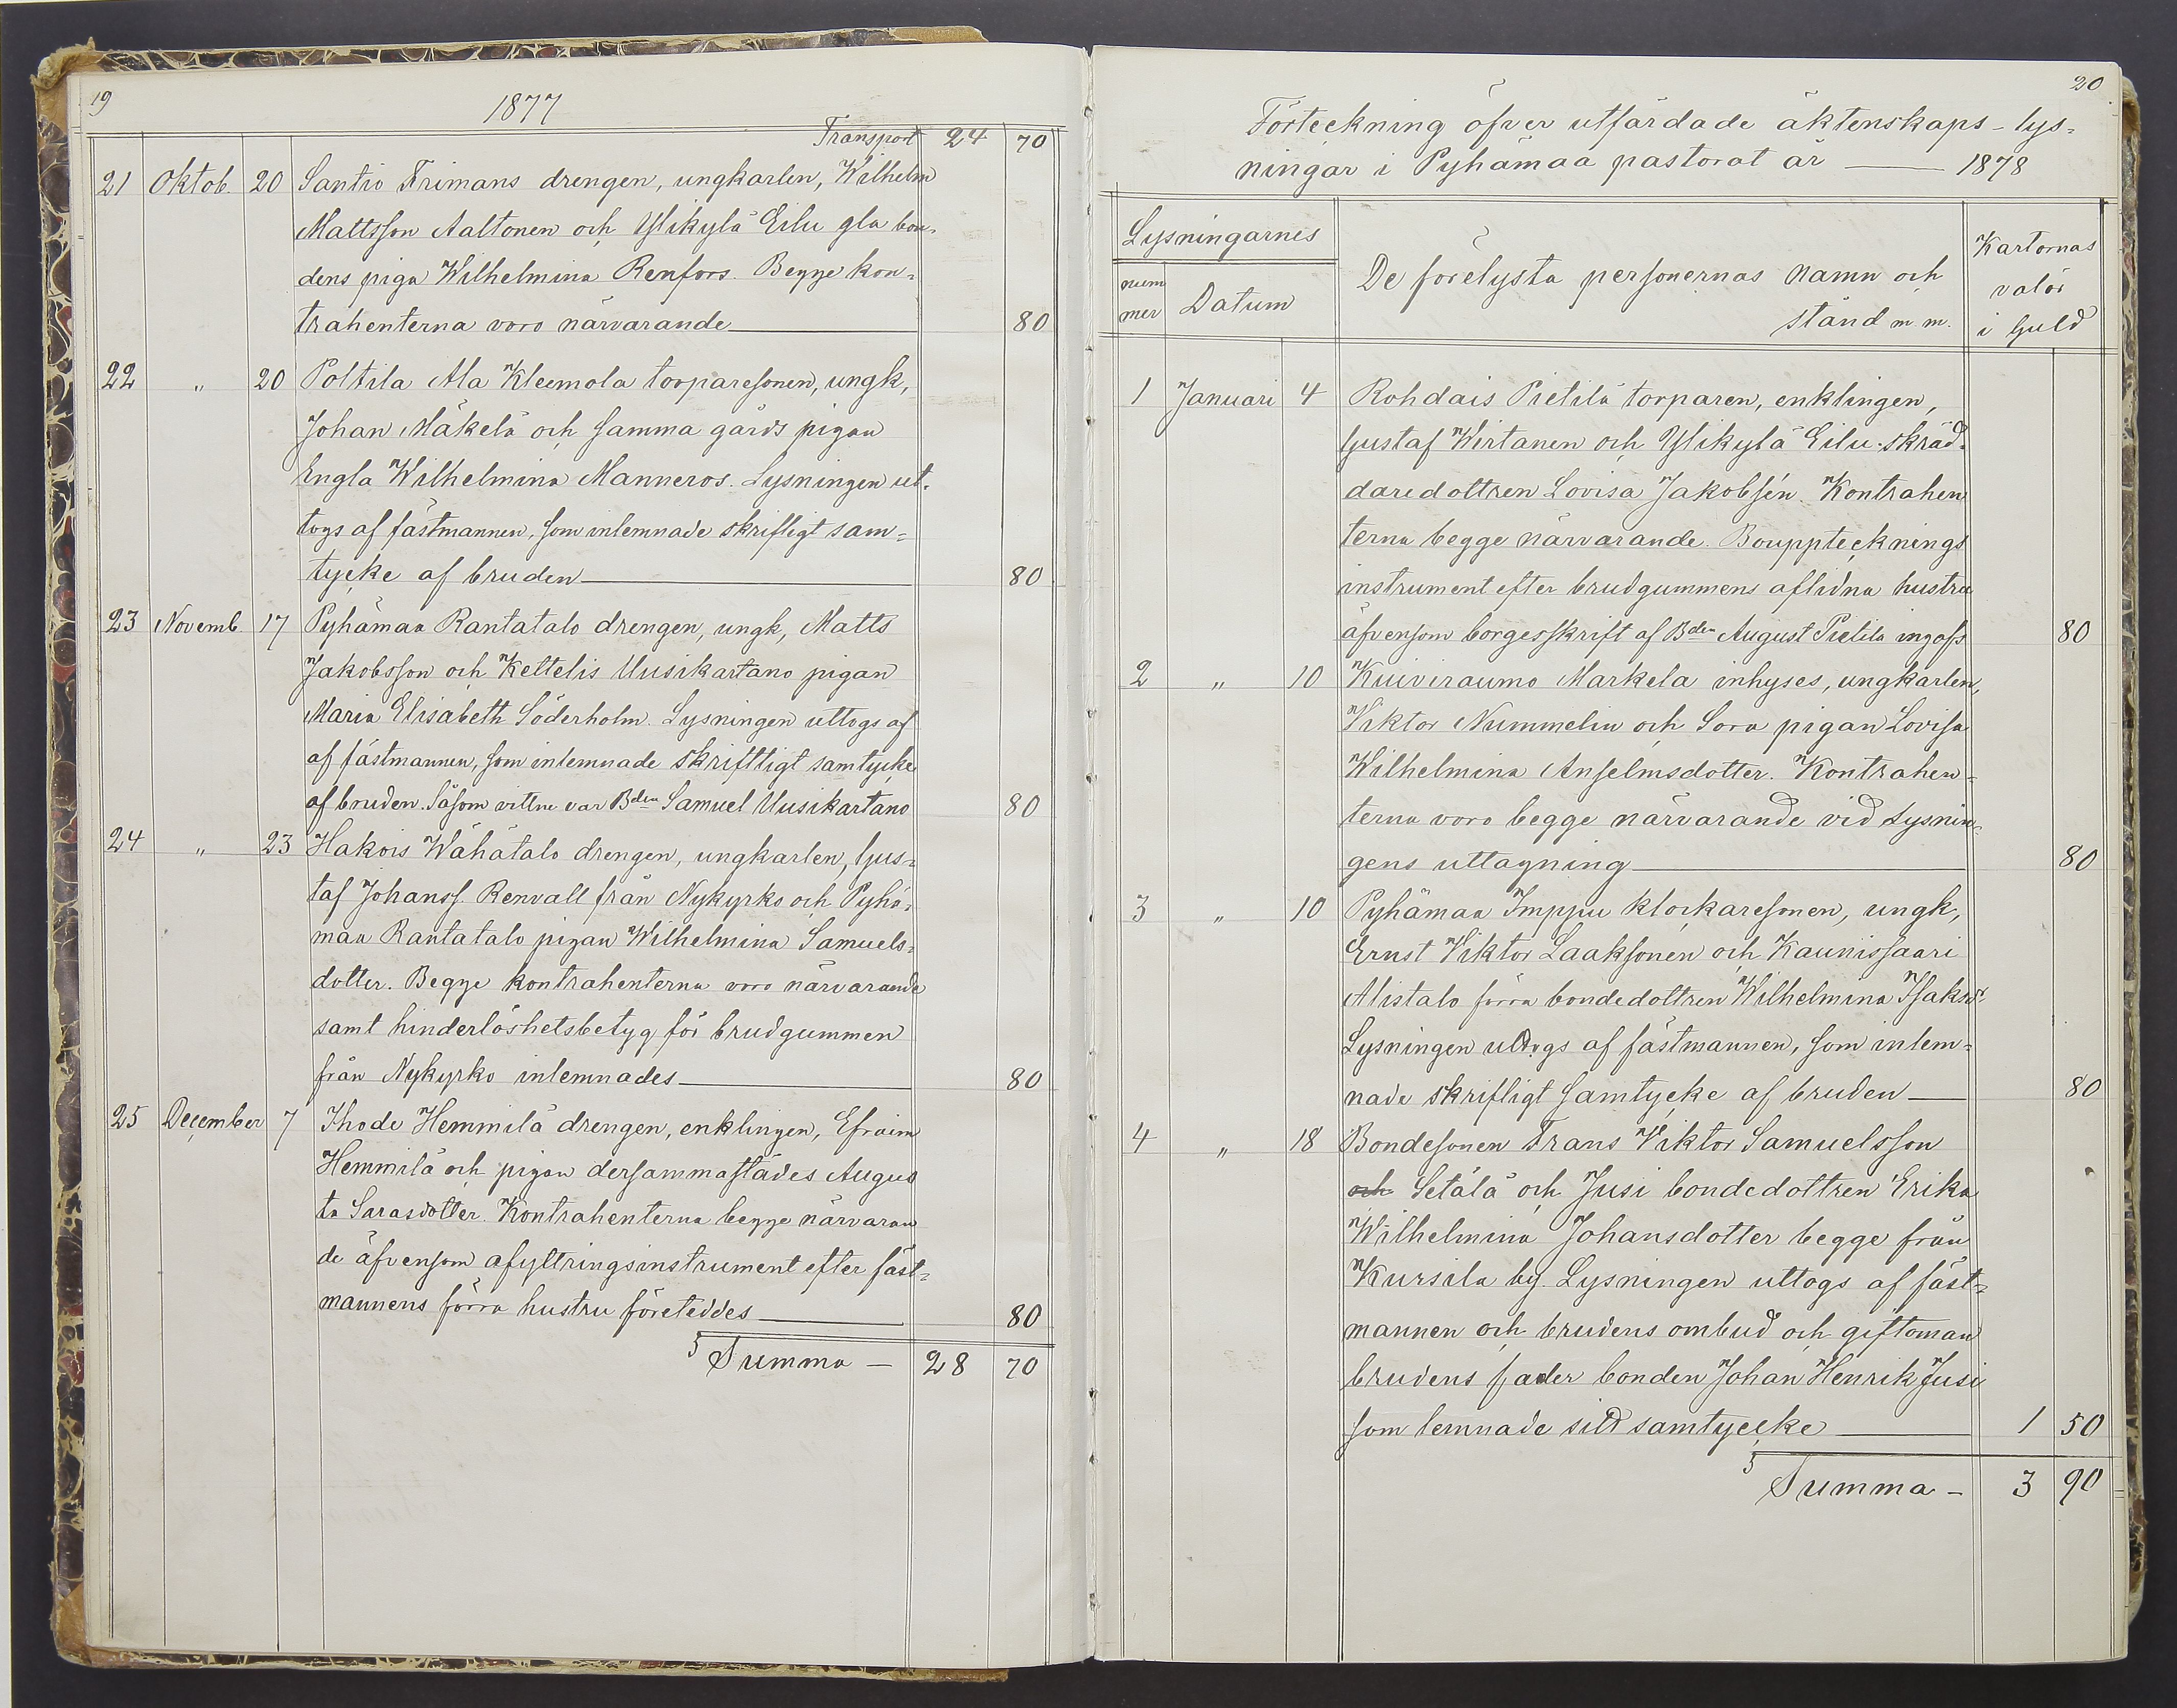 19
1877
Transport 24 70
21 Oktob. 20 Santio Frimans drengen, ungkarlen, Wilhelm
Mattsson Aaltonen och Ylikylä Eilu gla bon-
dens piga Wilhelmina Renfors. Begge kon-
trahenterna voro närvarande 80
22 " 20 Poltila Ala Kleemola torparesonen, ungk,
Johan Mäkelä och samma gårds pigan
Engla Wilhelmina Manneros. Lysningen ut-
togs af fästmannen, som inlemnade skrifligt sam-
tycke af bruden 80
23 Novemb. 17 Pyhämaa Rantatalo drengen, ungk, Matts
Jakobsson och Kettelis Uusikartano pigan
Maria Elisabeth Söderholm. Lysningen uttogs af
af fästmannen, som inlemnade skriftligt samtycke
af bruden. Såsom vittne var Bden Samuel Uusikartano 80
24 " 23 Hakois Wähätalo drengen, ungkarlen, Gus-
taf Johanss. Renvall från Nykyrko och Pyhä-
maa Rantatalo pigan Wilhelmina Samuels-
dotter. Begge kontrahenterna voro närvarande
samt hinderlöshetsbetyg för brudgummen
från Nykyrko inlemnades 80
25 December 7 Ihode Hemmilä drengen, enklingen, Efraim
Hemmilä och pigan dersammastädes Augus
ta Sarasdotter. Kontrahenterna begge närvaran
de äfvensom afyttringsinstrument efter fäst-
mannens förra hustru företeddes 80
Summa — 28 70
20
Förteckning öfver utfärdade äktenskaps-lys-
ningar i Pyhämaa pastorat år — 1878
Lysningarnes
num
mer
Datum
De förelysta personernas namn och
stånd m m.
Kartornas
valör
i Guld
1 Januari 4 Rohdais Pietilä torparen, enklingen,
Gustaf Wirtanen och Ylikylä Eilu skräd-
daredottren Lovisa Jakobsén. Kontrahen
terna begge närvarande. Bouppteknings
instrument efter brudgummens aflidna hustru
äfvensom borgesskrift af Bden August Pietilä ingafs 80
2 " 10 Kuiviraumo Markela inhyses, ungkarlen,
Viktor Nummelin och Sora pigan Lovisa
Wilhelmina Anselmsdotter. Kontrahen-
terna voro begge närvarande vid Lysnin-
gens uttagning 80
3 " 10 Pyhämaa Imppu klockaresonen, ungk,
Ernst Viktor Laaksonen och Kaunissaari
Alistalo förra bondedottren Wilhelmina Isaksd.
Lysningen uttogs af fästmannen, som inlem-
nade skrifligt samtycke af bruden 80
4 " 18 Bondesonen Frans Viktor Samuelsson
och Setälä och Jusi bondedottren Erika
Wilhelmina Johansdotter begge från
Kursila by. Lysningen uttogs af fäst-
mannen och brudens ombud och giftoman
brudens fader bonden Johan Henrik Jusi
som lemnade sitt samtycke 1 50
Summa — 3 90